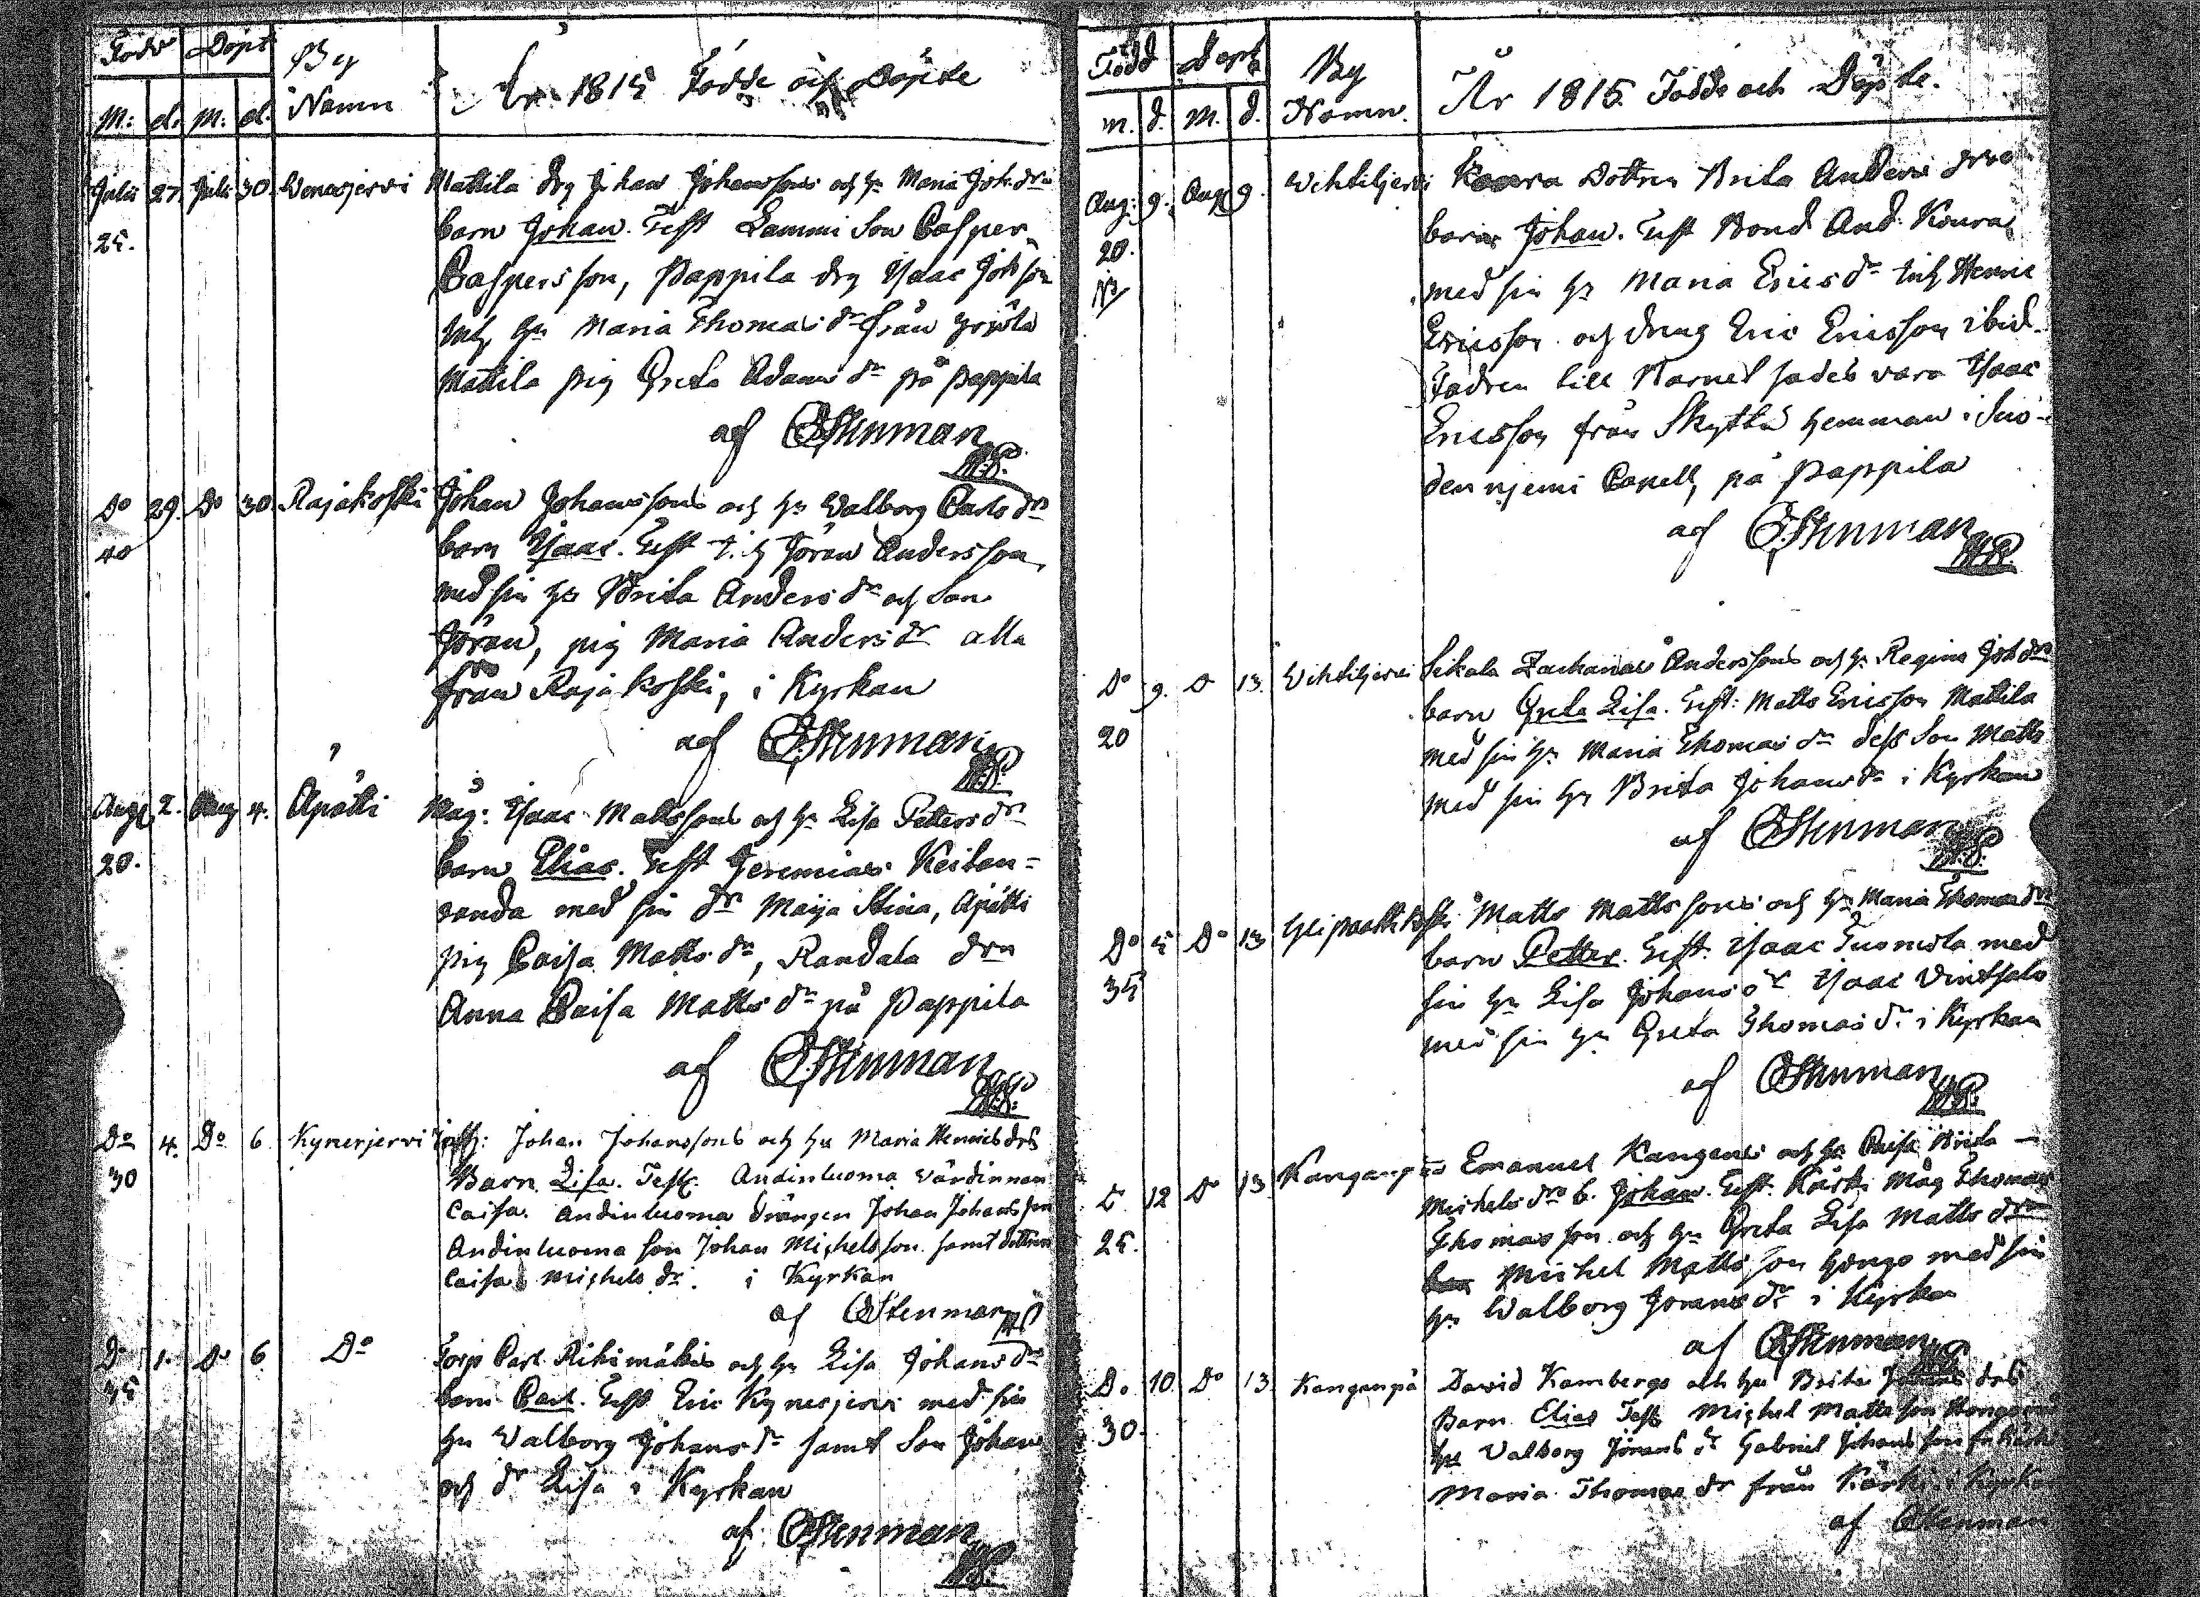 Född Döpt By Namn
År 1815 Födde och Döpte
M: d. M: d.
Julii 27. Julii 30. Venesjervi Mattila drg Johan Johanssons och h:u Maria Joh:dr:s
25. barn Johan. Test Lammi Son Casper
Caspersson, Pappila drg Isaac Joh:son
Inh. h:u Maria Thomas dr från
Mattila pig Greta Adams dr på Pappila
af Stenman
Do 29. Do 30 Rajakoski Johan Johanssons och h:u Walborg Carls dr:s
40 barn Isaac. Test Jöran Andersson
med sin h:u Brita Anders dr och Son
Jöran, pig Maria Anders dr alla
från Rajakoski, i Kyrkan
af Stenman
Aug 2. Aug 4. Apåtti Måg: Isaac Mattssons och h:u Lisa Petters dr:s
20. barn Elias. Test Jeremias Keitan=
randa med sin dr Maija Stina, Apåtti
pig Caisa Matts dr, Randala dr:n
Anna Caisa Matts dr på Pappila
af Stenman
Do 4. Do 6. Kynerjervi Inh: Johan Johanssons och h:u Maria Henrics drs
30 Barn Lisa. Test. Andinluoma Värdinnan
Caisa. Andinluoma drängen Johan Johansson
Andinluoma son Johan Michelsson samt dottren
Caisa Michels dr. i Kyrkan
af Stenman
Do 1. Do 6. Do Torp Carl Rihimäkis och h:u Lisa Johans dr:s
35 barn Carl. Test Eric Kynesjervi med sin
h:u Walborg Johans dr samt Son Johan
och dr Lisa i Kyrkan
af Stenman
Född Döpt By Namn.
År 1815. Födde och Döpte.
m. d. M. d.
Aug: 9. Aug 9. Vihtiljervi Koura Dottren Brita Anders dr:s
20. barn Johan. Test Bond And. Koura,
med sin h:u Maria Erics dr Inh Henric
Ericsson och dräng Eric Ericsson ibid.
Fadren till Barnet sades vara Isaac
Ericsson från Skyttä hemman i Suo-
denniemi Capell, på Pappila
af Stenman
Do 9. Do 13. Vihtiljervi Seikala Zacharias Anderssons och h:u Regina Joh dr:s
20 barn Greta Lisa. Test: Matts Ericsson Mattila
med sin h:u Maria Thomas dr dess Son Matts
med sin h:u Brita Johans dr i Kyrkan
af Stenman
Do 5 Do 13 Ylipaattikoski Matts Mattssons och h:u Maria Thomas dr:s
35 barn Petter. Test. Isaac Tuomola med
sin h:u Lisa Johans dr Isaac Vintsalo
med sin h:u Greta Thomas dr i Kyrkan
af Stenman
Do 12 Do 13 Kanganpää Emanuel Kangens och h:u Caisa Brita
25. Michels dr:s b. Johan. Test. Kärki Måg Thomas
Thomasson och h:u Greta Lisa Matts dr
Michel Mattsson Hongo med sin
h:u Walborg Jörans dr i Kyrkan
af Stenman
Do. 10. Do 13 Kanganpä David Kambergs och h:u Brita Johans drs
30. Barn Elias Test Michel Mattsson Hongo
h:u Valborg Jörans dr Gabriel Johansson
Maria Thomas dr från Kärki i Kyrkan
af Stenman